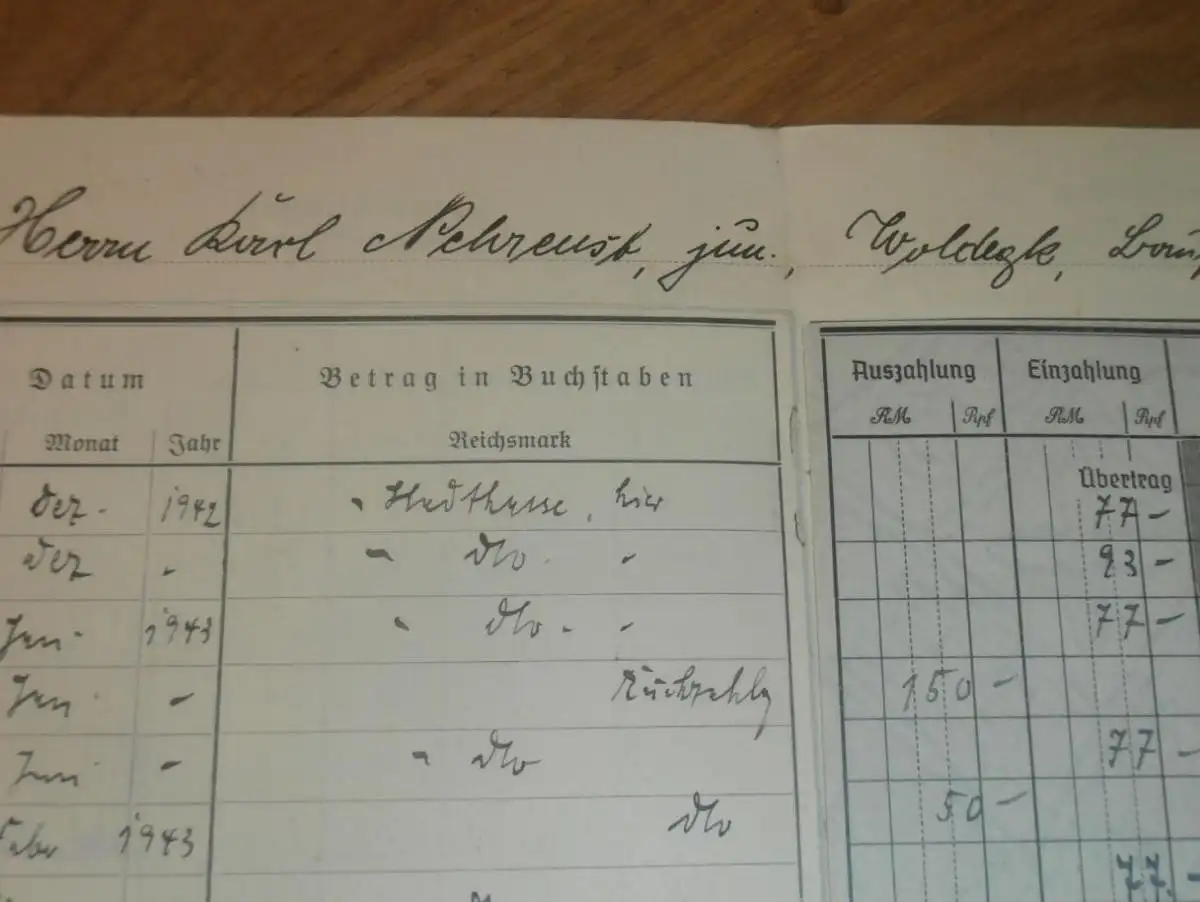 Herrn Karl Nehrenst, jun., Woldegk,
Datum Betrag in Buchstaben Auszahlung Einzahlung
Monat Jahr Reichsmark RM Rpf RM Rpf
Übertrag
Dez. 1942 " Stadtkasse, hier 77 –
Dez " " dto. " 93 –
Jan. 1943 " dto. " 77 –
Jan. " Rückzahlg 150 –
Jan. " " dto 77 –
Febr 1943 dto 50 –
77 –